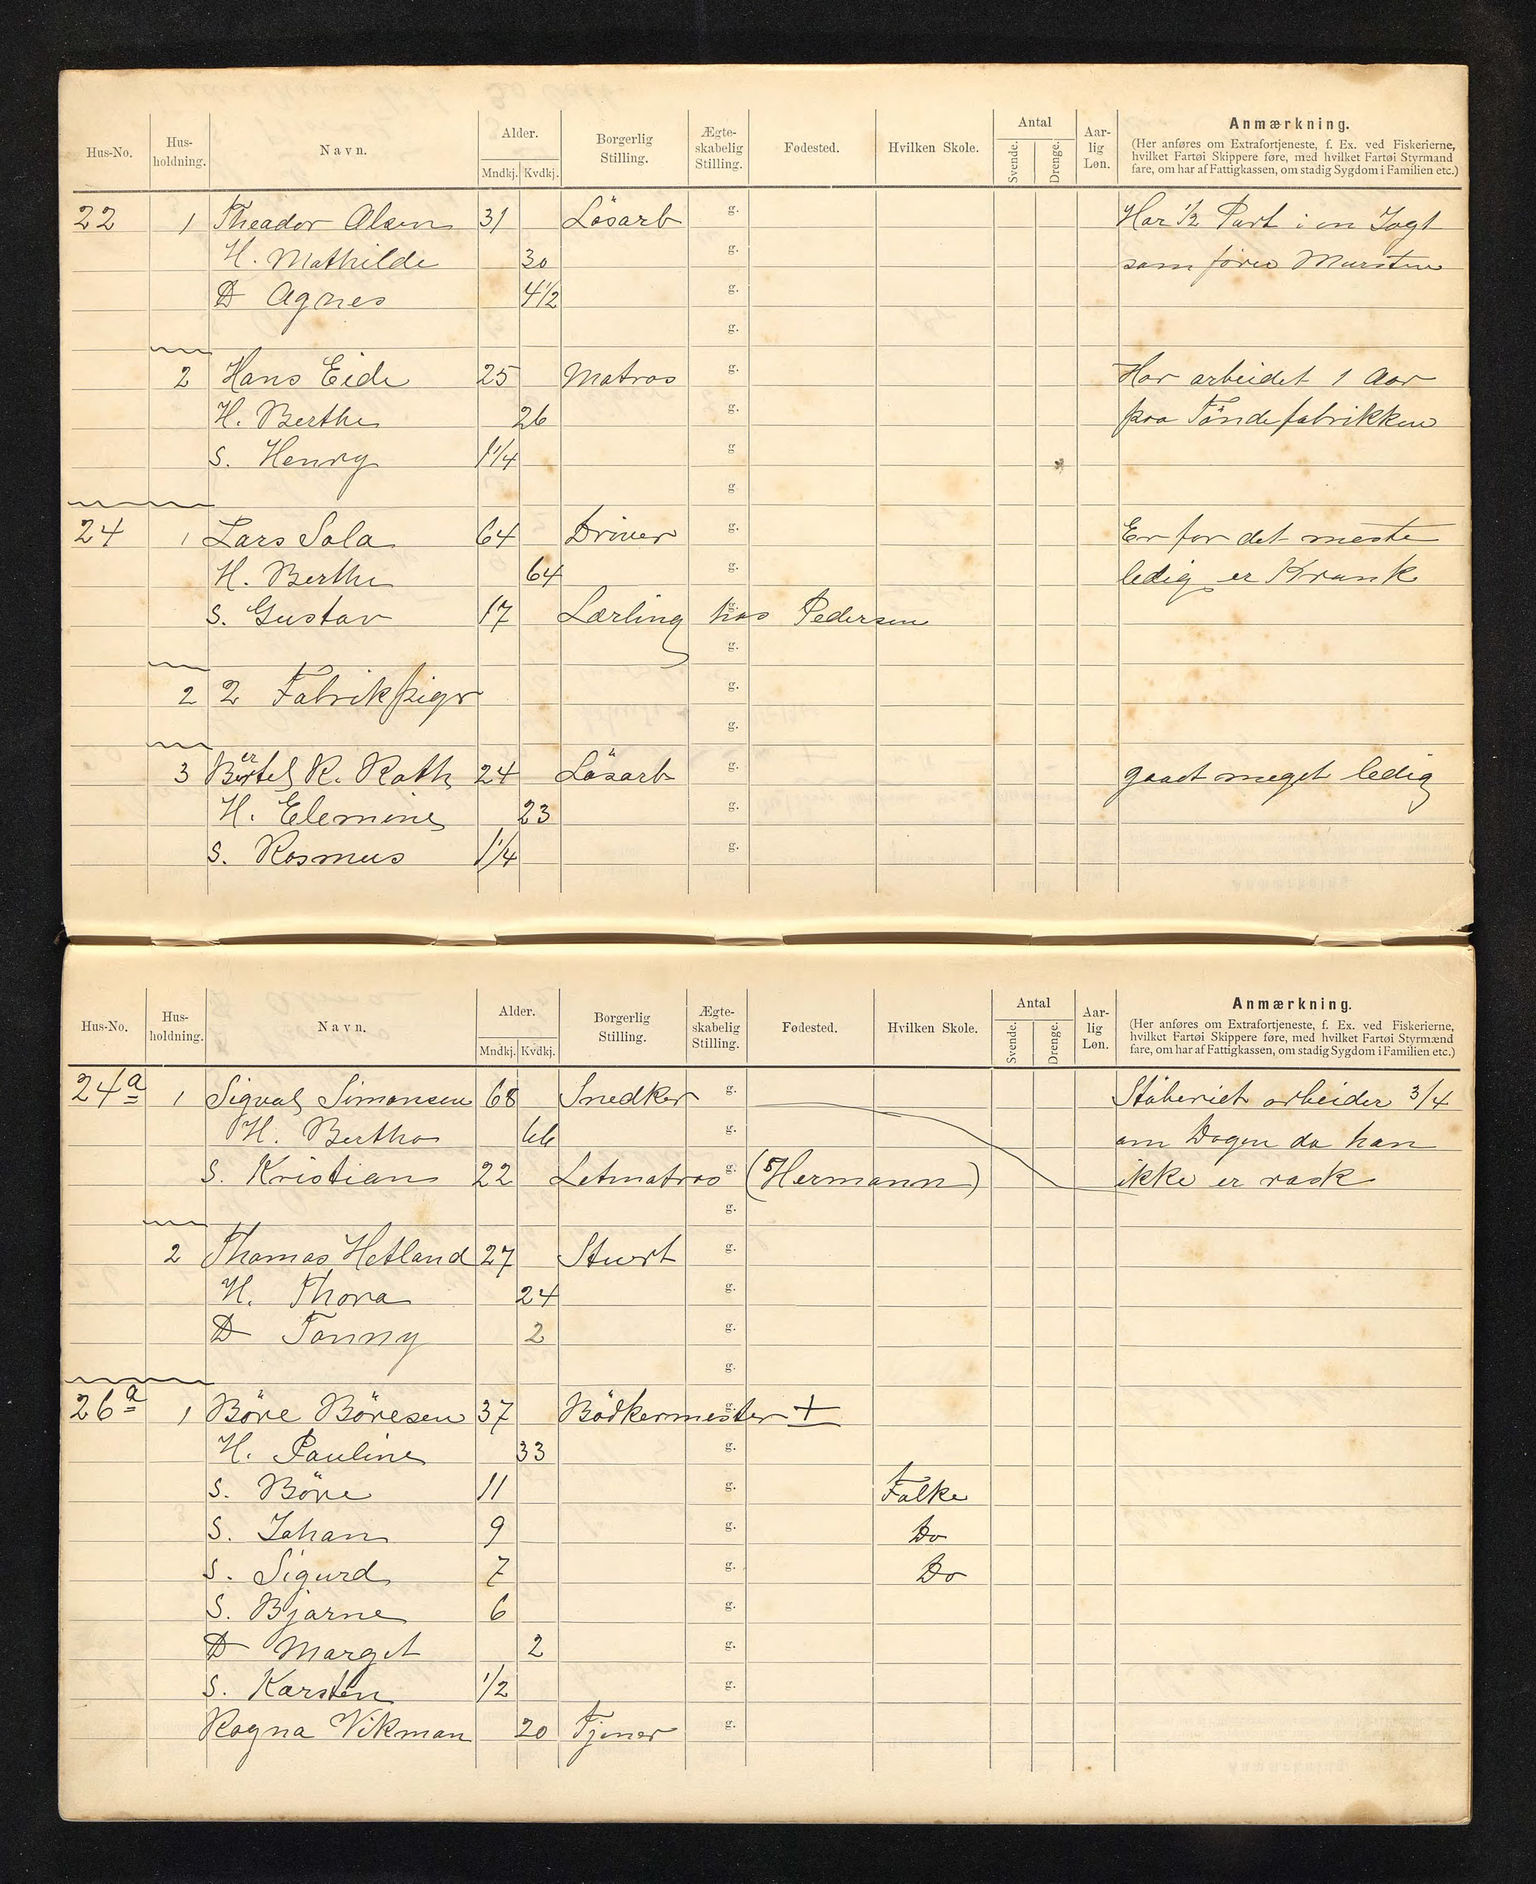 Hus-No. Hus-holdning. Navn. Alder. Mndkj. Kvdkj. Borgerlig Stilling. Ægte-skabelig Stilling. Fødested. Hvilken Skole. Antal Svende. Drenge. Aar-lig Løn. Anmærkning.
(Her anføres om Extrafortjeneste, f. Ex. ved Fiskerierne,
hvilket Fartøi Skippere føre, med hvilket Fartøi Styrmænd
fare, om har af Fattigkassen, om stadig Sygdom i Familien etc.)
22 1 Theador Olsen 31 Lösarb g. Har 1/2 Part i en Jagt
H. Mathilde 30 g. som fører Mursten
D Agnes 4 1/2 g.
g.
2 Hans Eide 25 Matros g. Har arbeidet 1 Aar
H. Berthe 26 g. paa Töndefabrikken
S. Henry 1 1/4 g
g
24 1 Lars Sola 64 Driver g. Er for det meste
H. Berthe 64 g. ledig er Krank
S. Gustav 17 Lærling hos Pedersen g.
g.
2 2 Fabrikpiger g.
g.
3 Bertel R. Rath 24 Lösarb g. gaaet meget ledig
H. Elemine 23 g.
S. Rasmus 1 1/4 g.
Hus-No. Hus-holdning. Navn. Alder. Mndkj. Kvdkj. Borgerlig Stilling. Ægte-skabelig Stilling. Fødested. Hvilken Skole. Antal Svende. Drenge. Aar-lig Løn. Anmærkning.
(Her anføres om Extrafortjeneste, f. Ex. ved Fiskerierne,
hvilket Fartøi Skippere føre, med hvilket Fartøi Styrmænd
fare, om har af Fattigkassen, om stadig Sygdom i Familien etc.)
24a 1 Sigval Simonsen 68 Snedker g. Stöberiet arbeider 3/4
H. Bertha 66 g. om Dagen da han
S. Kristian 22 Letmatros g. (Hermann) ikke er rask
g.
2 Thomas Hetland 27 Stuert g.
H. Thora 24 g.
D Tonny 2 g.
g.
26a 1 Böre Böresen 37 Bödkermester + g.
H. Pauline 33 g.
S. Böre 11 g. Folke
S. Johan 9 g. Do
S. Sigurd 7 g. Do
S. Bjarne 6 g.
D Marget 2 g.
S. Karsten 1/2 g.
Ragna Vikman 20 Tjener g.